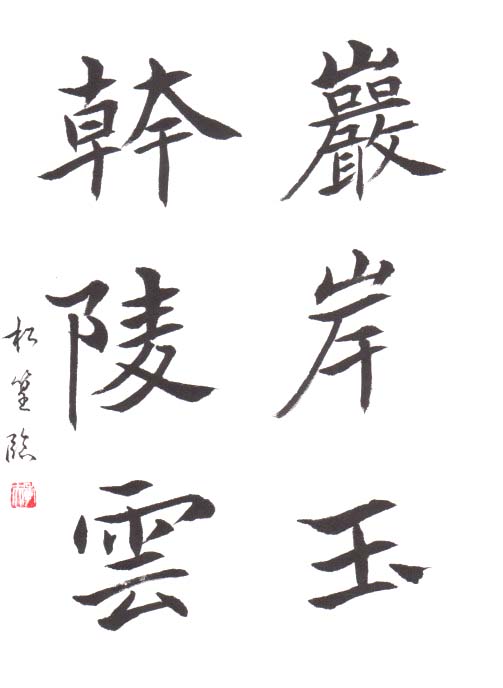 巖岸玉
幹陵雲
松篁臨